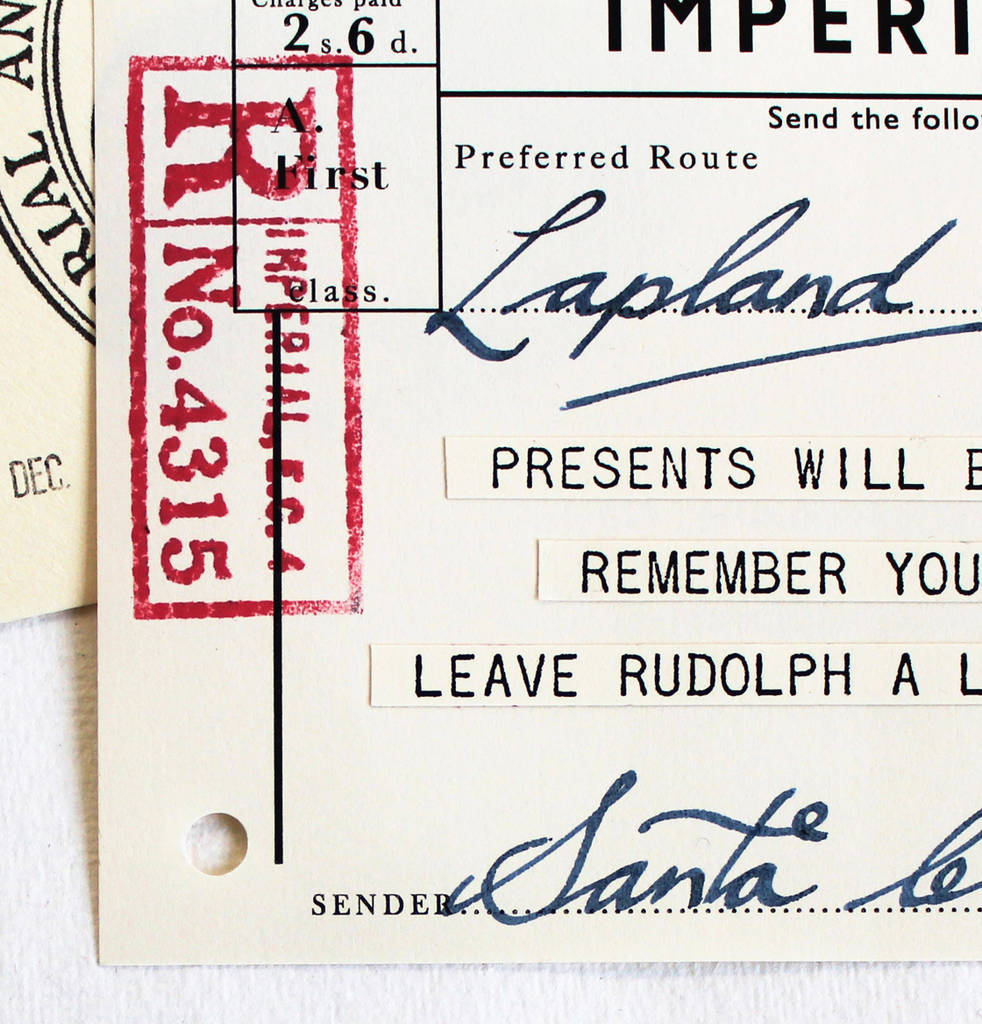 Charges paid
2 s. 6 d.
A.
First
class.
IMPERI
Send the follo
Preferred Route
Lapland
R
No. 4315
IMPERIAL, EC4
RIAL AN
DEC.
PRESENTS WILL
REMEMBER YOU
LEAVE RUDOLPH A L
SENDER Santa